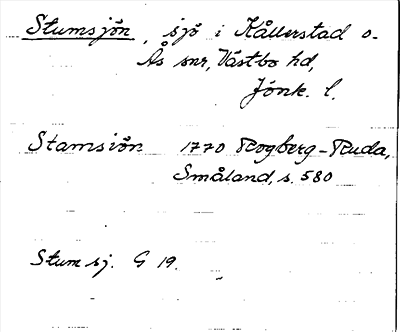 Stumsjön, sjö i Kållerstad o.
Ås snr, Västbo hd,
Jönk. l.
Stamsiön 1770 Rogberg-Ruda,
Småland, s. 580
Stumsj. G 19.